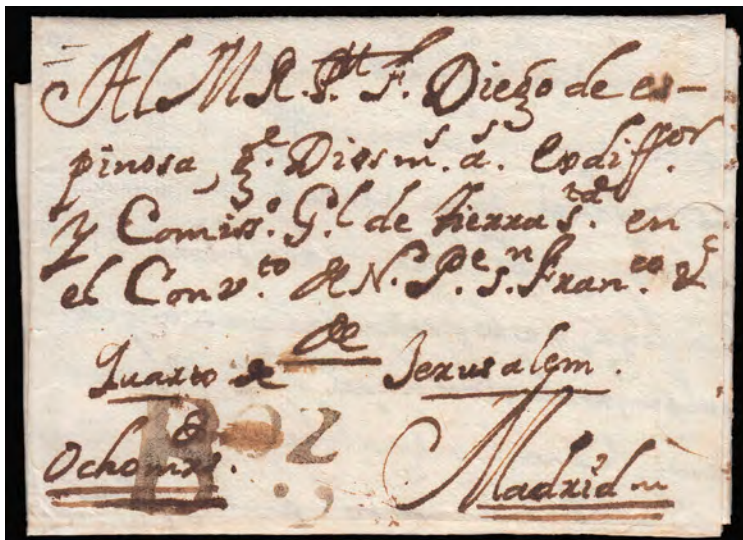 Al M R. P. F. Diego de es-
pinosa, q.e Dios m.s a.s Exdiff.or
y Comiss.o G.l de tierra S.ta en
el Conv.to de N. P.e S. Fran.co
de
Quarto de Jerusalem.
Ochomrs. Madrid